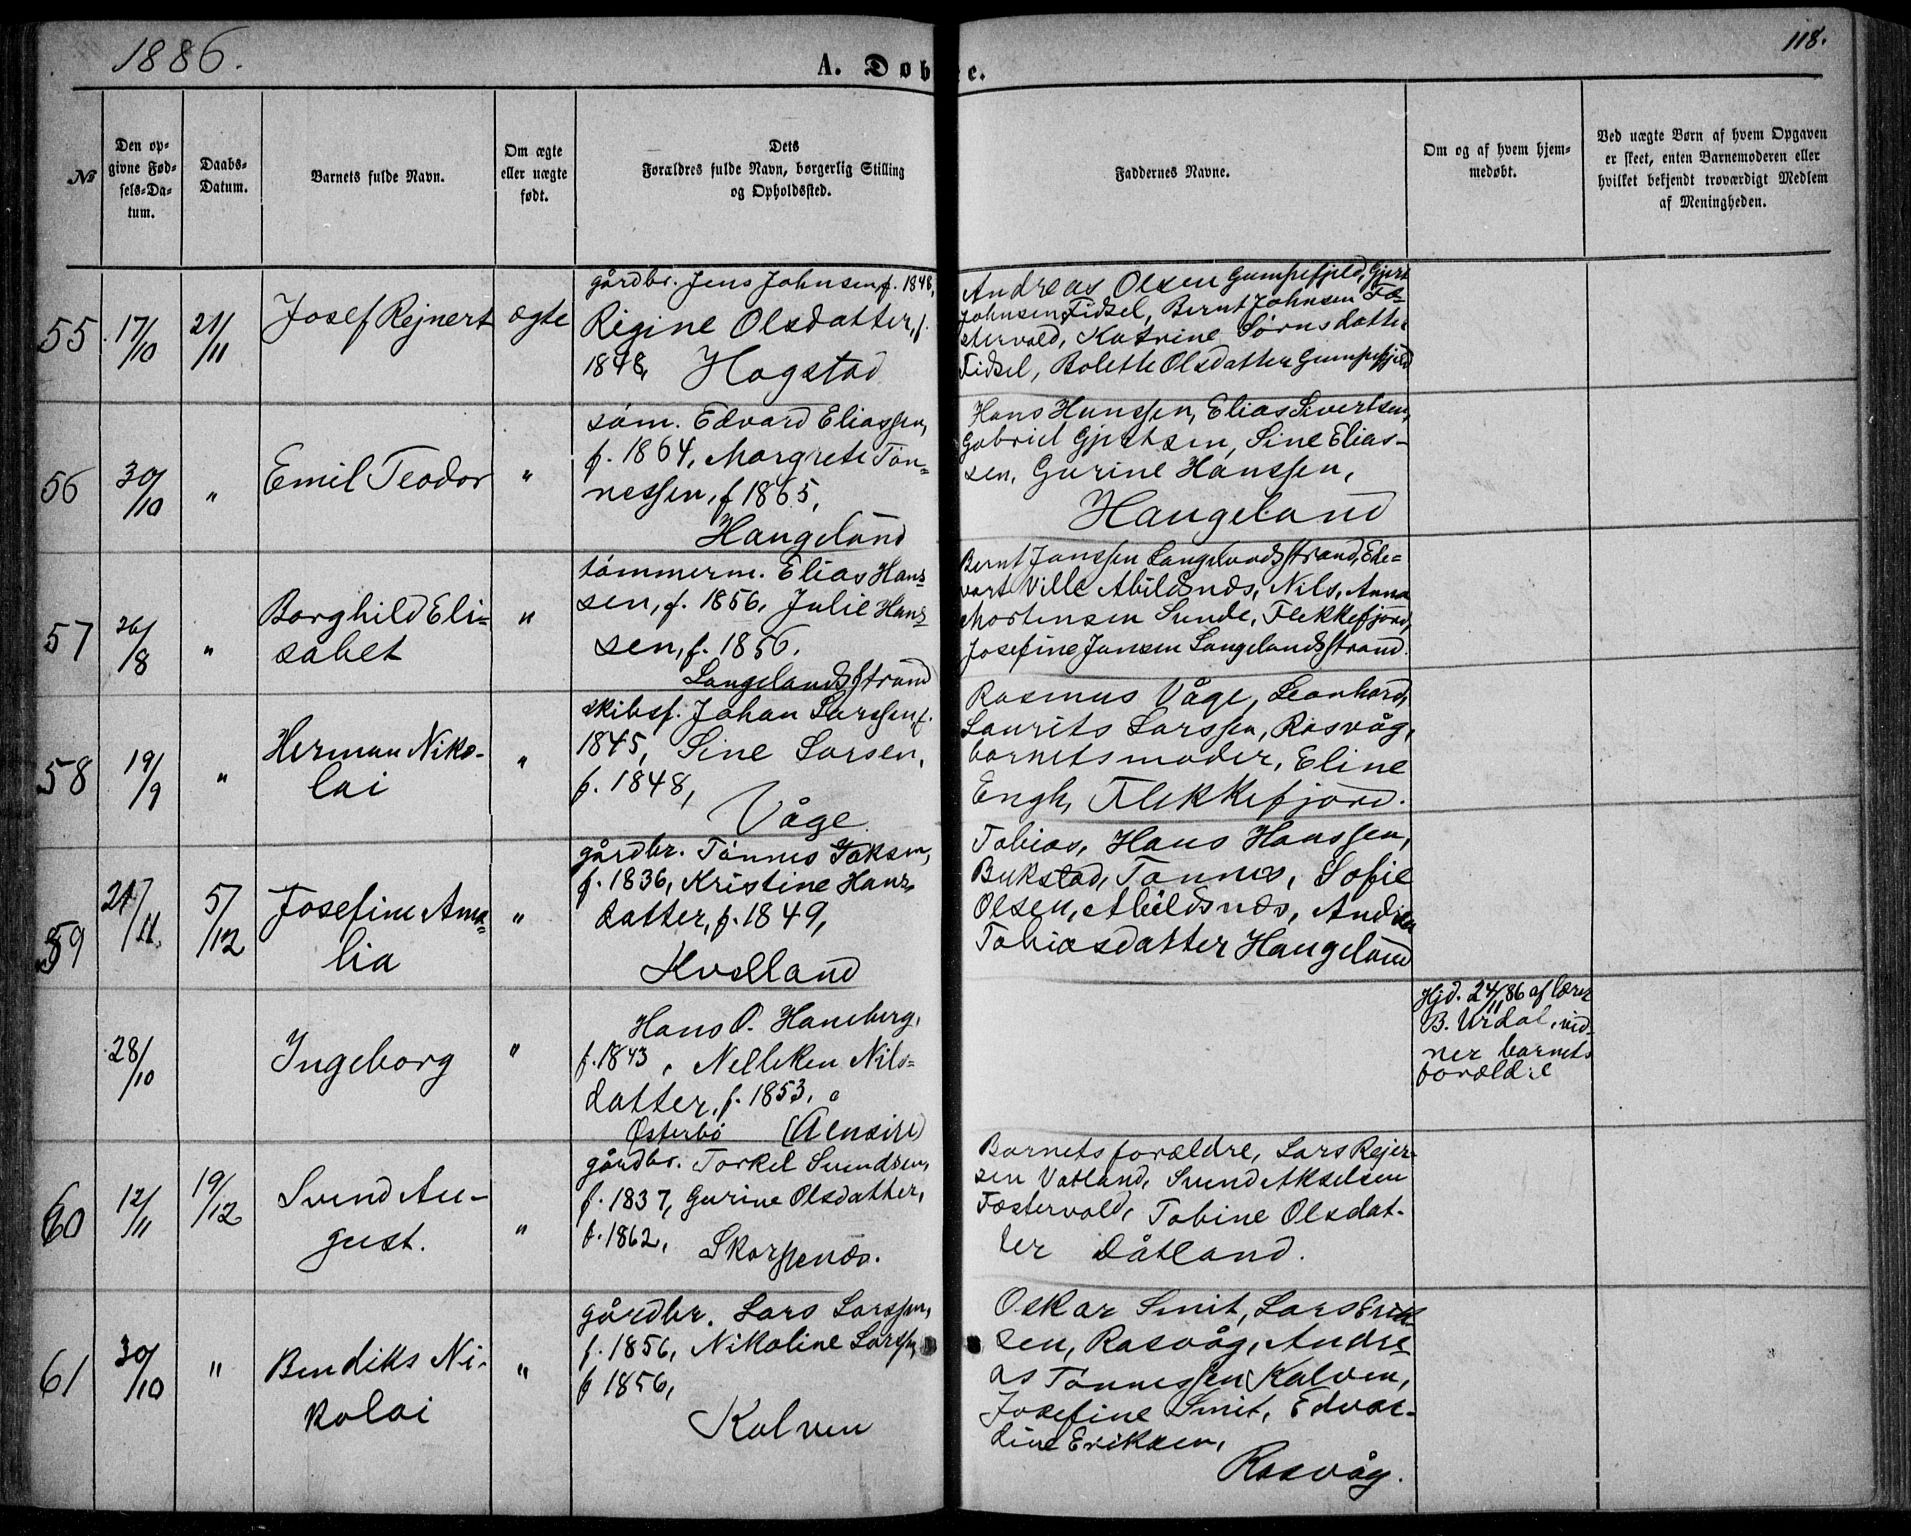 1886.
118.
A. Døbte.
№
Den op-
givne Fød-
sels-Da-
tum.
Daabs-
Datum.
Barnets fulde Navn.
Om ægte
eller uægte
født.
Dets
Forældres fulde Navn, borgerlig Stilling
og Opholdssted.
Faddernes Navne.
Om og af hvem hjem-
medøbt.
Ved uægte Børn af hvem Opgaven
er skeet, enten Barnemoderen eller
hvilket bekjendt troværdigt Medlem
af Meningheden.
55
17/10
21/11
Josef Rejnert
ægte
gårdbr. Jens Johnsen f. 1848,
Regine Olsdatter, f.
1848, Hogstad
Andreas Olsen Gumpefjeld, Gjert
Johnsen Fidsel, Bernt Johnsen Fæ-
stervold, Katrine Sørnsdatter
Fidsel, Bolette Olsdatter Gumpefjeld
56
30/10
"
Emil Teodor
"
søm. Edvard Eliassen,
f. 1864, Margrete Tøn-
nessen, f 1865,
Haugeland
Hans Hanssen, Elias Sivertsen,
Gabriel Gjertsen, Sine Elias-
sen, Gurine Hanssen,
Haugeland
57
26/8
"
Borghild Eli-
sabet
"
tømmerm. Elias Hans-
sen, f. 1856, Julie Hans-
sen, f. 1856.
Langelandsstrand
Bernt Janssen Langelandsstrand, Ede-
vart Ville Abildsnæs, Nils, Anna
Mortensen Sunde, Flekkefjord,
Josefine Jansen Langelandsstrand.
58
19/9
"
Herman Niko-
lai
"
skibsf. Johan Larssen f.
1845, Sine Larsen,
f. 1848,
Våge
Rasmus Våge, Leonhard,
Laurits Larssen, Rasvåg,
barnets moder, Eline
Engh, Flekkefjord.
59
21/11
5/12
Josefine Ama-
lia
"
gårdbr. Tønnes
f. 1836, Kristine Hans-
datter, f. 1849,
Kvelland
Tobias, Hans Hanssen,
Bukstad, Tønnes, Sofie
Olsen, Abildsnæs,
Tobiasdatter Haugeland
28/10
Ingeborg
"
Hans O. Haneberg,
f. 1843, Nelleken Nils-
datter, f. 1853,
Østerbø (Aensire)
Hjd. 24/11 86 af lærer
B. Urdal, vid-
ner barnets
forældre
60
12/11
19/12
Svend Au-
gust.
"
gårdbr. Torkel Svendsen,
f. 1837, Gurine Olsdatter,
f. 1862, Skarpenæs.
Barnets forældre, Lars Rejer-
sen Vatland, Svend Akselsen
Fæstervold, Tobine Olsdat-
ter Dåtland.
61
30/10
"
Bendiks Ni-
kolai
"
gårdbr. Lars Larssen,
f. 1856, Nikoline Larssen
f 1856,
Kalven
Oskar Smit, Lars Erik-
sen, Rasvåg, Andre-
as Tønnessen Kalven,
Josefine Smit, Edvar-
dine Eriksen,
Rasvåg.